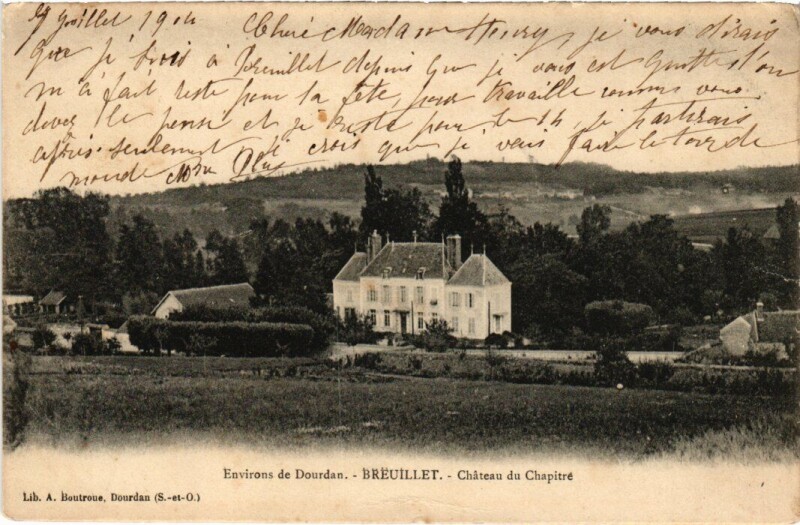 Juillet 1904 Chère Madame Henry, je vous dirais
que je suis à Breuillet depuis que je vous est quittés l'on
m'a fait resté pour la fête, pas travaillé comme vous
devez le pensé et je reste pour le 14, je partirais
après seulement je crois que je vais faire le tour de
monde
Environs de Dourdan. - BREUILLET. - Château du Chapitre
Lib. A. Boutroue, Dourdan (S.-et-O.)